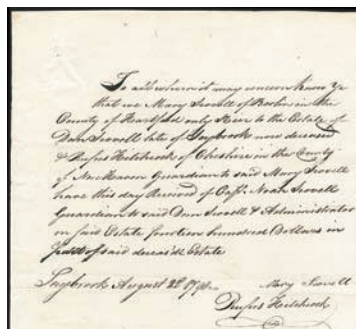 To all whom it may concern Know Ye
that we Mary Scovell of Berlin in the
County of Hartford only Heir to the Estate of
Dan Scovell late of Saybrook now deceased
& Rufus Hitchcock of Cheshire in the County
of New Haven Guardian to said Mary Scovell
have this day Received of Capt. Noah Scovell
Guardian to said Dan Scovell & Administrator
on said Estate fourteen hundred Dollars in
said deceasd Estate
Saybrook August 22
Mary Scovell
Rufus Hitchcock